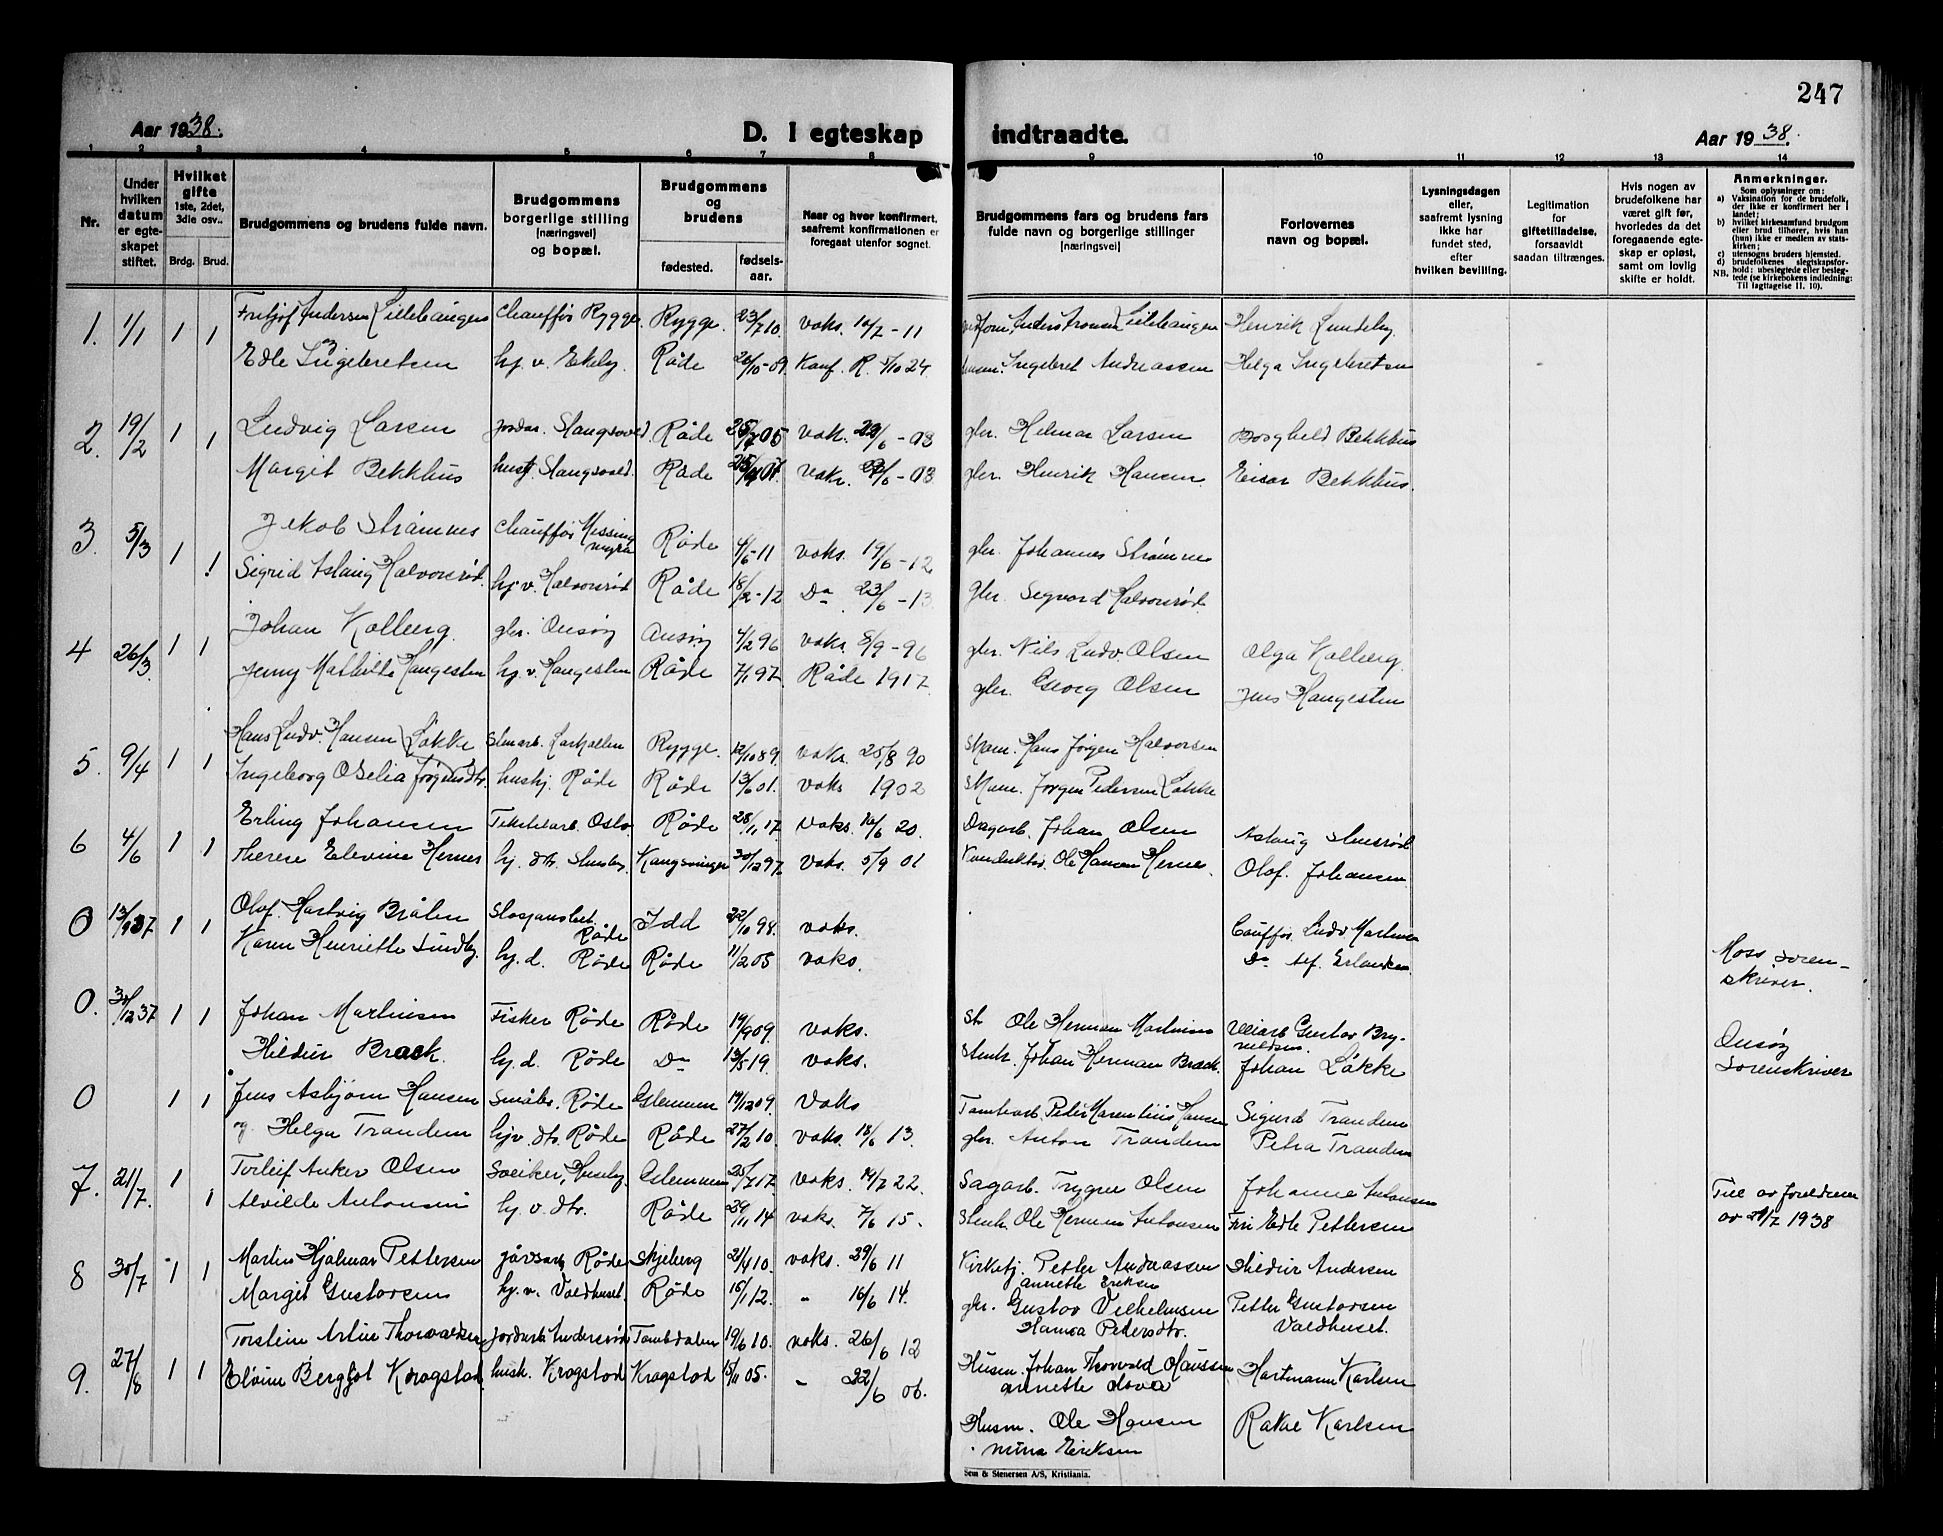 247
Aar 1938.
D. I egteskap indtraadte.
Aar 1938.
1 2 3 4 5 6 7 8 9 10 11 12 13 14
Nr.
Under hvilken datum er egteskapet stiftet.
Hvilket gifte 1ste, 2det, 3die osv..
Brdg. Brud.
Brudgommens og brudens fulde navn.
Brudgommens borgerlige stilling [næringsvei] og bopæl.
Brudgommens og brudens
fødested.
fødselsaar.
Naar og hvor konfirmert, saafremt konfirmationen er foregaat utenfor sognet.
Brudgommens fars og brudens fars fulde navn og borgerlige stillinger [næringsvei]
Forlovernes navn og bopæl.
Lysningsdagen eller, saafremt lysning ikke har fundet sted, efter hvilken bevilling.
Legitimation for giftetilladelse, forsaavidt saadan tiltrænges.
Hvis nogen av brudefolkene har været gift før, hvorledes da det foregaaende egteskap er opløst, samt om lovlig skifte er holdt.
Anmerkninger.
Som oplysninger om:
a) Vaksination for de brudefolk, der ikke er konfirmert her i landet;
b) hvilket kirkesamfund brudgom eller brud tilhører, hvis han (hun) ikke er medlem av statskirken;
c) utensogns bruders hjemsted.
d) brudefolkenes slegtskapsforhold: ubeslegtede eller beslegtede (se kirkebokens indledning:
NB. Til Iagttagelse II. 10).
1. 1/1 1 1 Fritjof Andersen Lillehaugen Chauffør Rygge. Rygge. 23/7 10. vaks. 10/7 - 11 Anders Aronsen Lillehaugen Henrik Lundeby
Edle Ingebretsen hj. v. Ekeby. Råde 26/10-09. Konf. R. 5/10 24. Ingebret Andreassen Helga Ingebretsen
2. 19/2 1 1 Ludvig Larsen Slangsvold. Råde 25/7 05 vak. 22/6 - 08 gbr. Helmar Larsen Borghild Bekkhus
Margit Bekkhus Slangsvold. Råde vakr. - 08 gbr. Henrik Hansen Einar Bekkhus.
3. 5/3 1 1 Jakob Strømnes Chauffør Missingmyra Råde 4/6-11 vaks. 19/6 - 12 gbr. Johannes Strømnes
Sigrid Aslaug Halvorsrød. hj. v. Halvorsrød Råde 18/2-12 Do 23/6 - 13 gbr. Sigvard Halvorsrød.
4 26/3. 1 1 Johan Kolberg. gbr. Onsøy Onsøy 4/2 96 vaks. 8/9 - 96 gbr. Nils Ludv. Olsen Olga Kolberg.
Jenny Mathilde Haugesten hj. v. Haugesten Råde 7/1 97 Råde 1917. gbr. Georg Olsen Jens Haugesten
5. 9/4 1 1 Hans Ludv. Hansen Løkke Stenarb. Larkollen Rygge. 12/10 89. vaks. 25/8 90 Hans Jørgen Halvorsen
Ingeborg Oselia Jørgensdtr. hushj. Råde Råde 13/6 01. vaks 1902 Jørgen Pedersen Løkke
6 4/6 1 1 Erling Johansen Tekstilarb. Oslo Råde 28/11 17. vaks. 10/6 20. Dagarb. Johan Olsen Aslaug
Therese Elevine Hernes hj. dtr. Kongsvinger 30/12 97. vaks. 5/9 01 Konduktør. Ole Hansen Hernes. Olof. Johansen
0 13/9 37 1 1 Olof. Hartvig Bråten Råde Idd 22/10 98. vaks. Ludv Martinsen
Karen Henriette Sundby. hj. d. Råde Råde 11/2 05 vaks. Do Alf. Erlandsen.
Moss sorenskriver.
0. 30/12 37 1 1 Johan Martinsen Fisker Råde Råde 19/9 09. vaks. Ole Herman Martinsen Gustav Brynildsen.
Hildur Brack. hj. d. Råde Do 13/5 19. vaks. Stenh. Johan Herman Brack. Johan Løkke
Onsøy Sorenskriver
0 1 1 Jens Asbjørn Hansen Småbr. Råde Glemmen 19/12 09. vaks Tomtearb. Peder Marentius Hansen Sigurd Trandem
og Helga Trandem hjv. dtr. Råde Råde 27/2 10. vaks. 18/6 13. gbr. Anton Trandem Petra Trandem
7. 21/7. 1 1 Torleif Anker Olsen Sveiker, Huseby. Glemmen 25/7 17. vaks. 19/7 22. Sagarb. Trygve Olsen Johanne Antonsen
Alvilde Antonsen hj. v. dtr. Råde 29/11 14 vaks. 7/6 15. Stenh. Ole Herman Antonsen Fru Edle Pettersen
Till av foreldrene av 21/7 1938
8 30/7 1 1 Martin Hjalmar Pettersen jordarb. Råde Skjeberg 21/4 10. vaks. 29/6 11 Kirketj. Petter Andreassen Hildur Andersen
annette Eriksen
Margit Gustavsen hj. v. Voldhuset. Råde 16/1 12. " 16/6 14. gbr. Gustav Vilhelmsen Petter Gustavsen
Hansa Petersdtr. Voldhuset.
9. 27/8 1 1 Torstein Artur Thorvaldsen Jordarb. Andersrød Tombdalen 19/6 10. vaks. 26/6 12 Husm. Johan Thorvald Hanssen Hartmann Karlsen
annette Lova
Elvine Bergljot Krogstad. hush. Krogstad Krogstad 15/11 05. " 22/6 06. Husm. Ole Hansen Rakel Karlsen
mina Eriksen
Sem & Stenersen A/S, Kristiania.